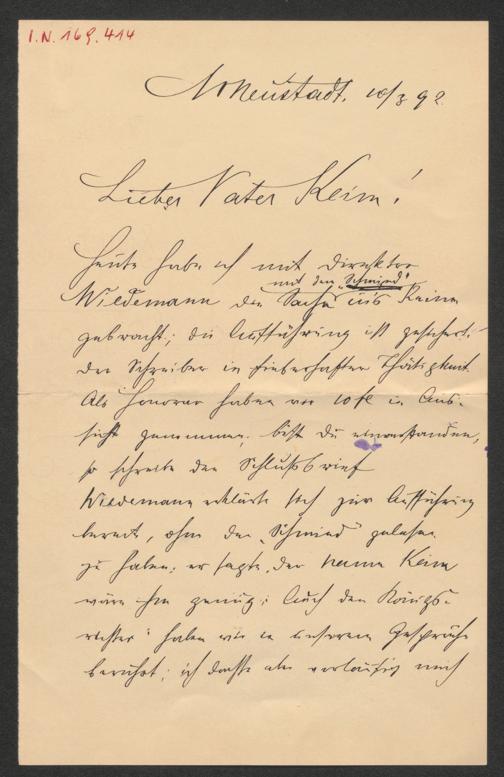 I.N. 169.414
Neustadt. 10/3 92.
Lieber Vater Keim!
Heute habe ich mit Direktor
mit dem „Schmied“
Wiedemann die Sache ins Reine
gebracht; die Aufführung ist gesichert;
der Schreiber in fieberhafter Thätigkeit.
Als Honorar haben wir 10 fl in Aus-
sicht genommen; bist Du einverstanden,
so schreibe den Schlußbrief
Wiedemann erklärte sich zur Aufführung
bereit, ohne den „Schmied“ gelesen
zu haben; er sagte, der Name Keim
wäre ihm genug; Auch den „Königs-
richter“ haben wir in unserem Gespräche
berührt; ich dachte aber vorläufig noch